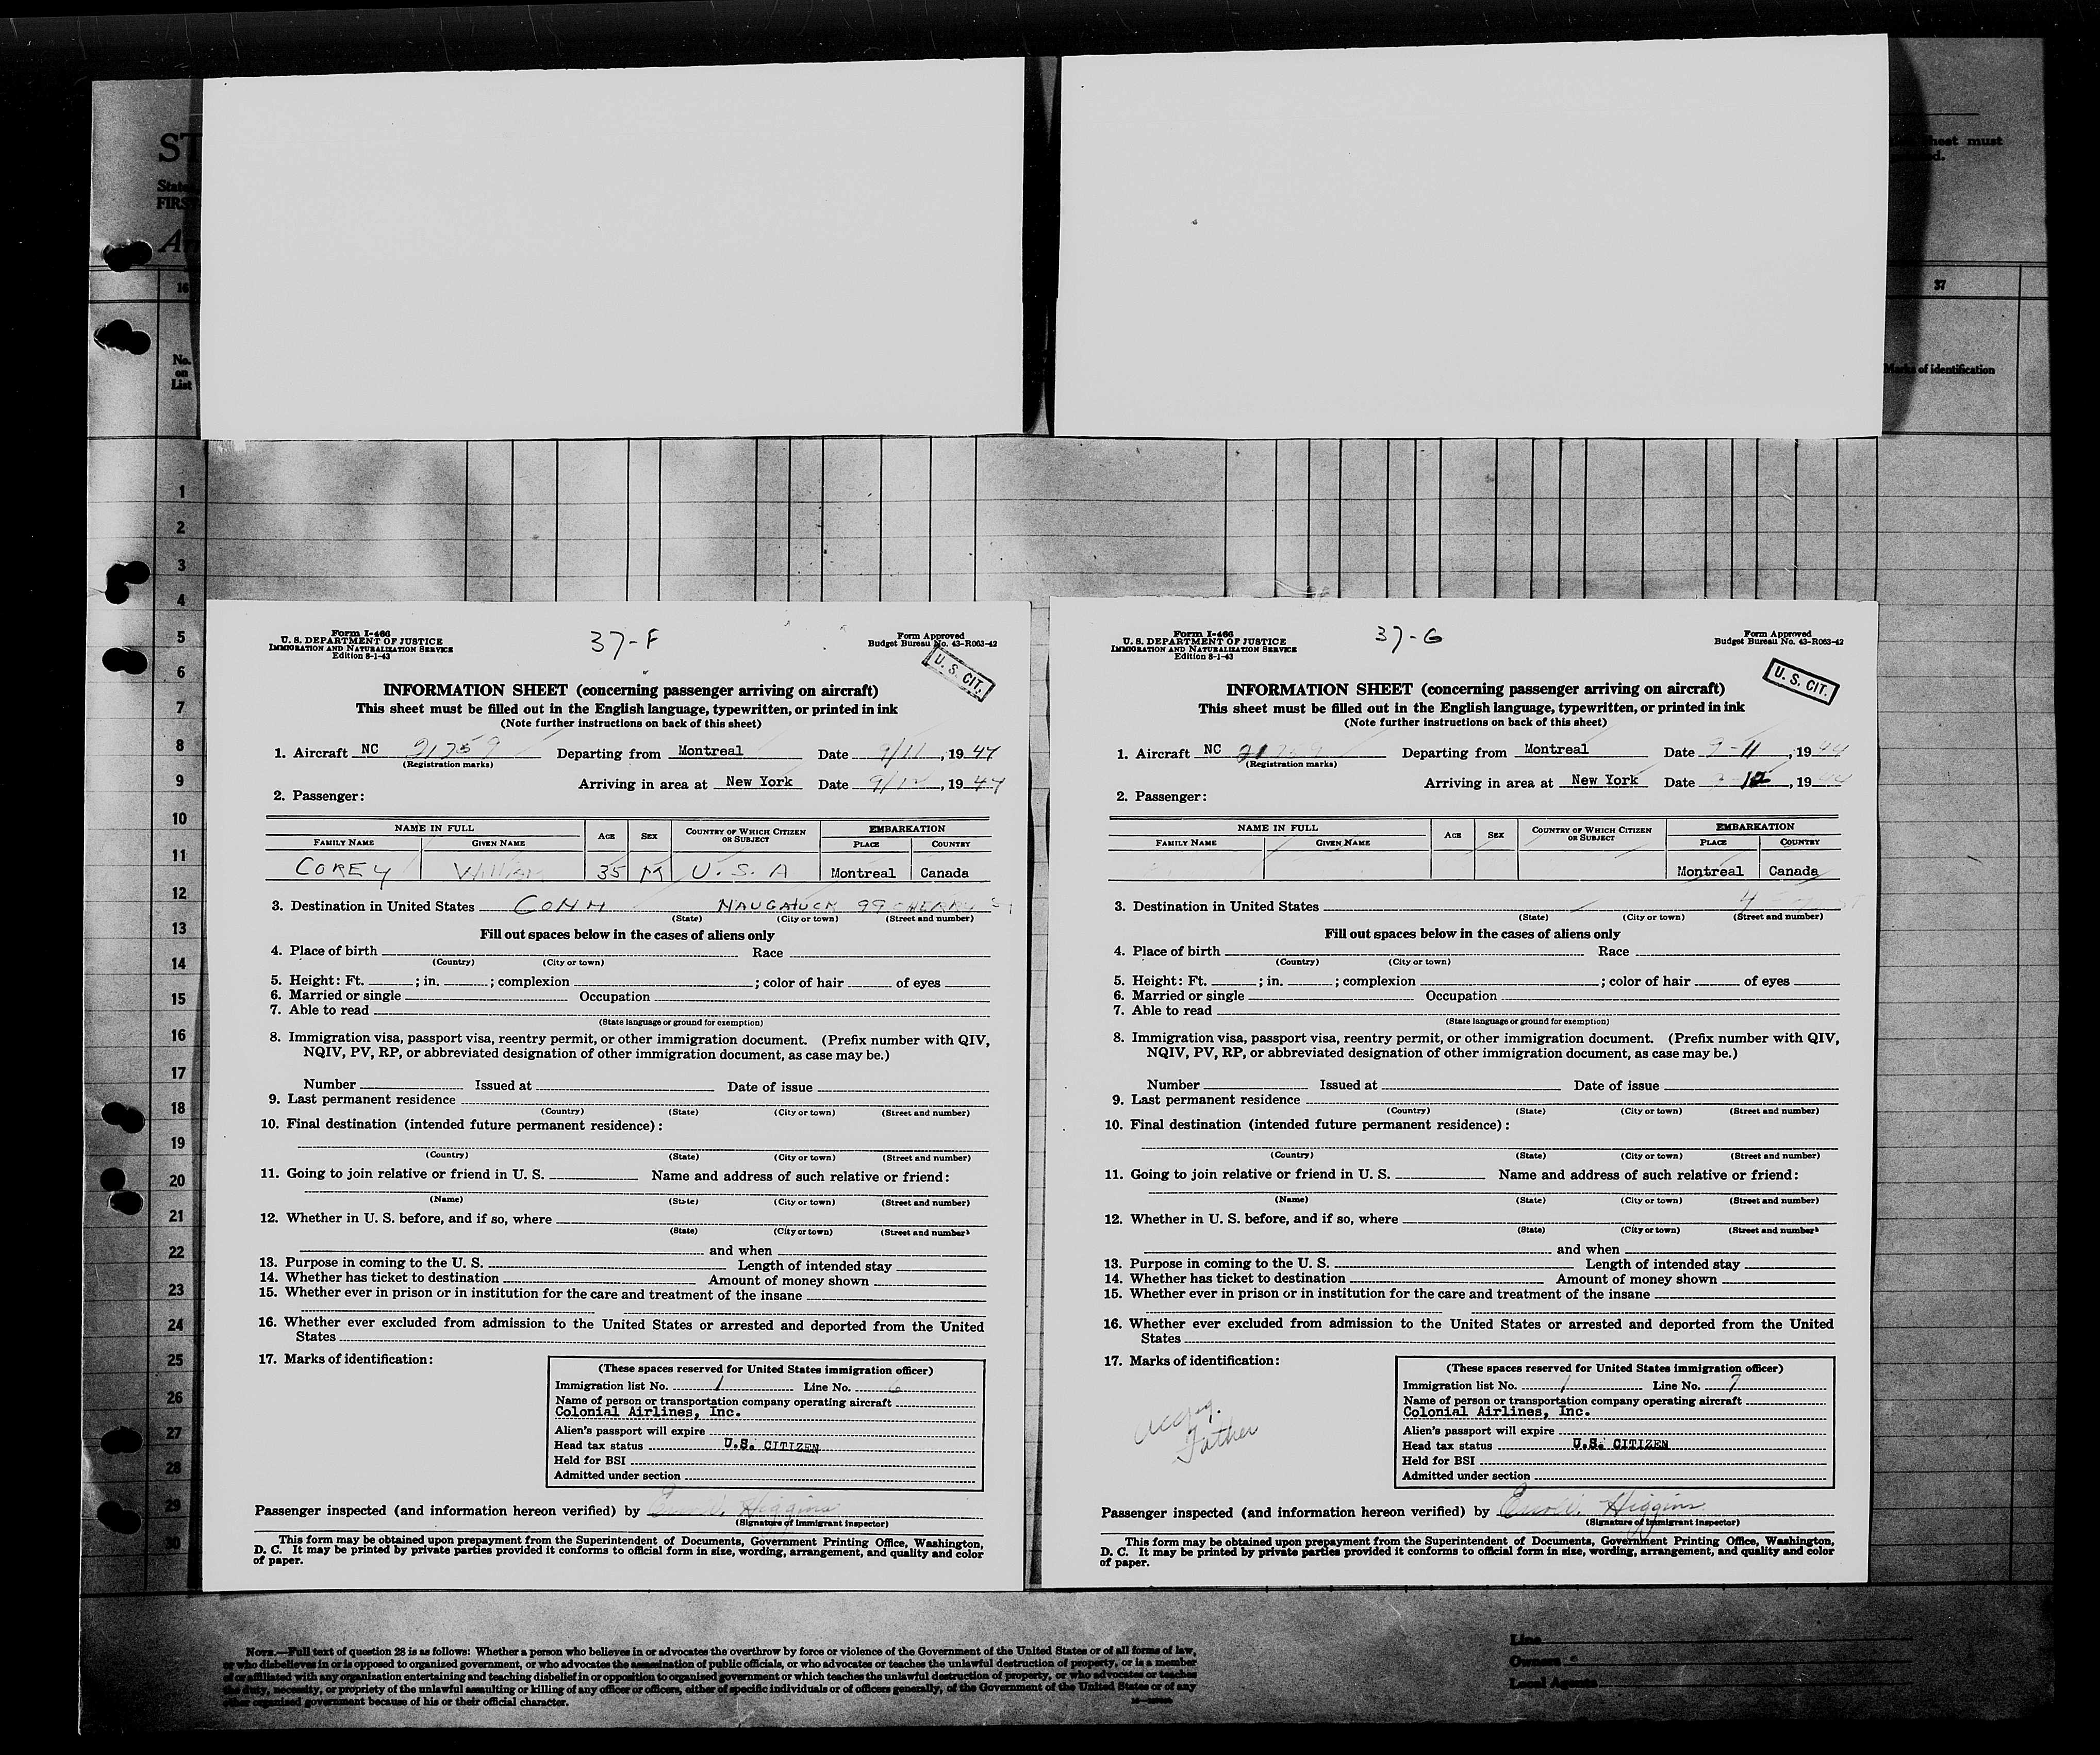 ST
State
FIRS
Ar
16
No.
on
List
heet must
ed.
37
Marks of identification
1
2
3
4
5
6
7
8
9
10
11
12
13
14
15
16
17
18
19
20
21
22
23
24
25
26
27
28
29
30
Form I-466
U. S. DEPARTMENT OF JUSTICE
IMMIGRATION AND NATURALIZATION SERVICE
Edition 8-1-43
37-F
Form Approved
Budget Bureau No. 43-R063-42
U. S. CIT.
INFORMATION SHEET (concerning passenger arriving on aircraft)
This sheet must be filled out in the English language, typewritten, or printed in ink
(Note further instructions on back of this sheet)
1. Aircraft NC 21759 Departing from Montreal Date 9/11, 1947
(Registration marks)
Arriving in area at New York Date 9/12, 1947
2. Passenger:
NAME IN FULL AGE SEX COUNTRY OF WHICH CITIZEN OR SUBJECT EMBARKATION
FAMILY NAME GIVEN NAME PLACE COUNTRY
COREY William 35 M U.S.A Montreal Canada
3. Destination in United States CONN NAUGATUCK 99 CHERRY ST
(State) (City or town) (Street and number)
Fill out spaces below in the cases of aliens only
4. Place of birth Race
(Country) (City or town)
5. Height: Ft. ; in. ; complexion ; color of hair of eyes
6. Married or single Occupation
7. Able to read
(State language or ground for exemption)
8. Immigration visa, passport visa, reentry permit, or other immigration document. (Prefix number with QIV,
NQIV, PV, RP, or abbreviated designation of other immigration document, as case may be.)
Number Issued at Date of issue
9. Last permanent residence
(Country) (State) (City or town) (Street and number)
10. Final destination (intended future permanent residence):
(Country) (State) (City or town) (Street and number)
11. Going to join relative or friend in U. S. Name and address of such relative or friend:
(Name) (State) (City or town) (Street and number)
12. Whether in U. S. before, and if so, where
(State) (City or town) (Street and number)
and when
13. Purpose in coming to the U. S. Length of intended stay
14. Whether has ticket to destination Amount of money shown
15. Whether ever in prison or in institution for the care and treatment of the insane
16. Whether ever excluded from admission to the United States or arrested and deported from the United
States
17. Marks of identification:
(These spaces reserved for United States immigration officer)
Immigration list No. 1 Line No. 6
Name of person or transportation company operating aircraft
Colonial Airlines, Inc.
Alien's passport will expire
Head tax status U.S. CITIZEN
Held for BSI
Admitted under section
Passenger inspected (and information hereon verified) by Higgins
(Signature of Immigrant Inspector)
This form may be obtained upon prepayment from the Superintendent of Documents, Government Printing Office, Washington,
D. C. It may be printed by private parties provided it conforms to official form in size, wording, arrangement, and quality and color
of paper.
Form I-466
U. S. DEPARTMENT OF JUSTICE
IMMIGRATION AND NATURALIZATION SERVICE
Edition 8-1-43
37-G
Form Approved
Budget Bureau No. 43-R063-42
U. S. CIT.
INFORMATION SHEET (concerning passenger arriving on aircraft)
This sheet must be filled out in the English language, typewritten, or printed in ink
(Note further instructions on back of this sheet)
1. Aircraft NC 21759 Departing from Montreal Date 9-11, 19
(Registration marks)
Arriving in area at New York Date 12, 19
2. Passenger:
NAME IN FULL AGE SEX COUNTRY OF WHICH CITIZEN OR SUBJECT EMBARKATION
FAMILY NAME GIVEN NAME PLACE COUNTRY
Montreal Canada
3. Destination in United States
(State) (City or town) (Street and number)
Fill out spaces below in the cases of aliens only
4. Place of birth Race
(Country) (City or town)
5. Height: Ft. ; in. ; complexion ; color of hair of eyes
6. Married or single Occupation
7. Able to read
(State language or ground for exemption)
8. Immigration visa, passport visa, reentry permit, or other immigration document. (Prefix number with QIV,
NQIV, PV, RP, or abbreviated designation of other immigration document, as case may be.)
Number Issued at Date of issue
9. Last permanent residence
(Country) (State) (City or town) (Street and number)
10. Final destination (intended future permanent residence):
(Country) (State) (City or town) (Street and number)
11. Going to join relative or friend in U. S. Name and address of such relative or friend:
(Name) (State) (City or town) (Street and number)
12. Whether in U. S. before, and if so, where
(State) (City or town) (Street and number)
and when
13. Purpose in coming to the U. S. Length of intended stay
14. Whether has ticket to destination Amount of money shown
15. Whether ever in prison or in institution for the care and treatment of the insane
16. Whether ever excluded from admission to the United States or arrested and deported from the United
States
17. Marks of identification:
accpg.
Father
(These spaces reserved for United States immigration officer)
Immigration list No. 1 Line No. 7
Name of person or transportation company operating aircraft
Colonial Airlines, Inc.
Alien's passport will expire
Head tax status U.S. CITIZEN
Held for BSI
Admitted under section
Passenger inspected (and information hereon verified) by Higgins
(Signature of Immigrant Inspector)
This form may be obtained upon prepayment from the Superintendent of Documents, Government Printing Office, Washington,
D. C. It may be printed by private parties provided it conforms to official form in size, wording, arrangement, and quality and color
of paper.
NOTE.—Full text of question 28 is as follows: Whether a person who believes in or advocates the overthrow by force or violence of the Government of the United States or of all forms of law,
or who disbelieves in or is opposed to organized government, or who advocates the assassination of public officials, or who advocates or teaches the unlawful destruction of property, or is a member
of or affiliated with any organization entertaining and teaching disbelief in or opposition to organized government or which teaches the unlawful destruction of property, or who advocates or teaches
the duty, necessity, or propriety of the unlawful assaulting or killing of any officer or officers, either of specific individuals or of officers generally, of the Government of the United States or of any
other organized government because of his or their official character.
Line
Owners
Local Agents